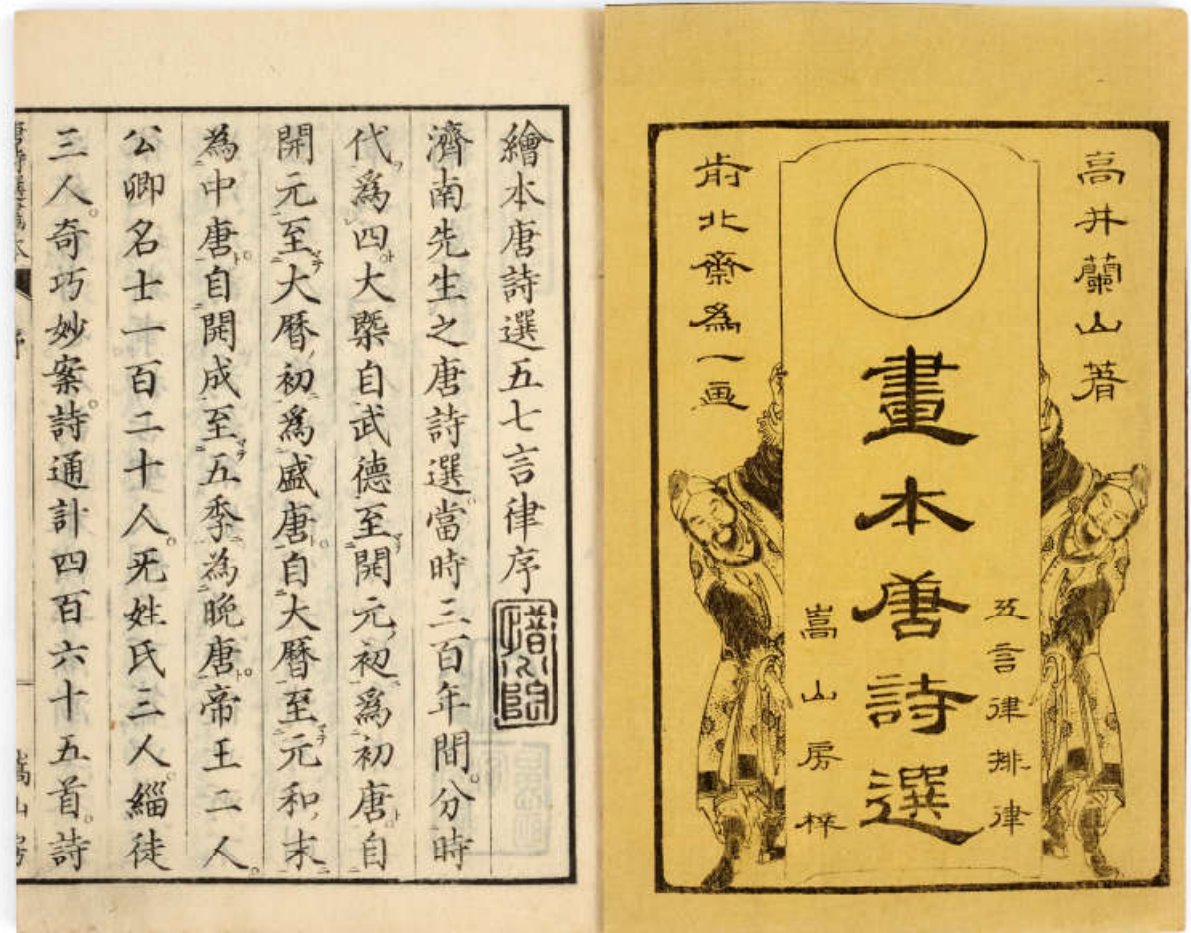 高井蘭山著
畫本唐詩選
五言律排律
嵩山房梓
前北斎爲一画
繪本唐詩選五七言律序
濟南先生之唐詩選當時三百年間。分時
代爲四大槩自武德至開元初爲初唐自
開元至大曆初爲盛唐自大曆至元和末
為中唐自開成至五季為晩唐帝王二人。
公卿名士一百二十人。旡姓氏三人。緇徒
三人。奇巧妙案詩。通計四百六十五首。詩
嵩山房